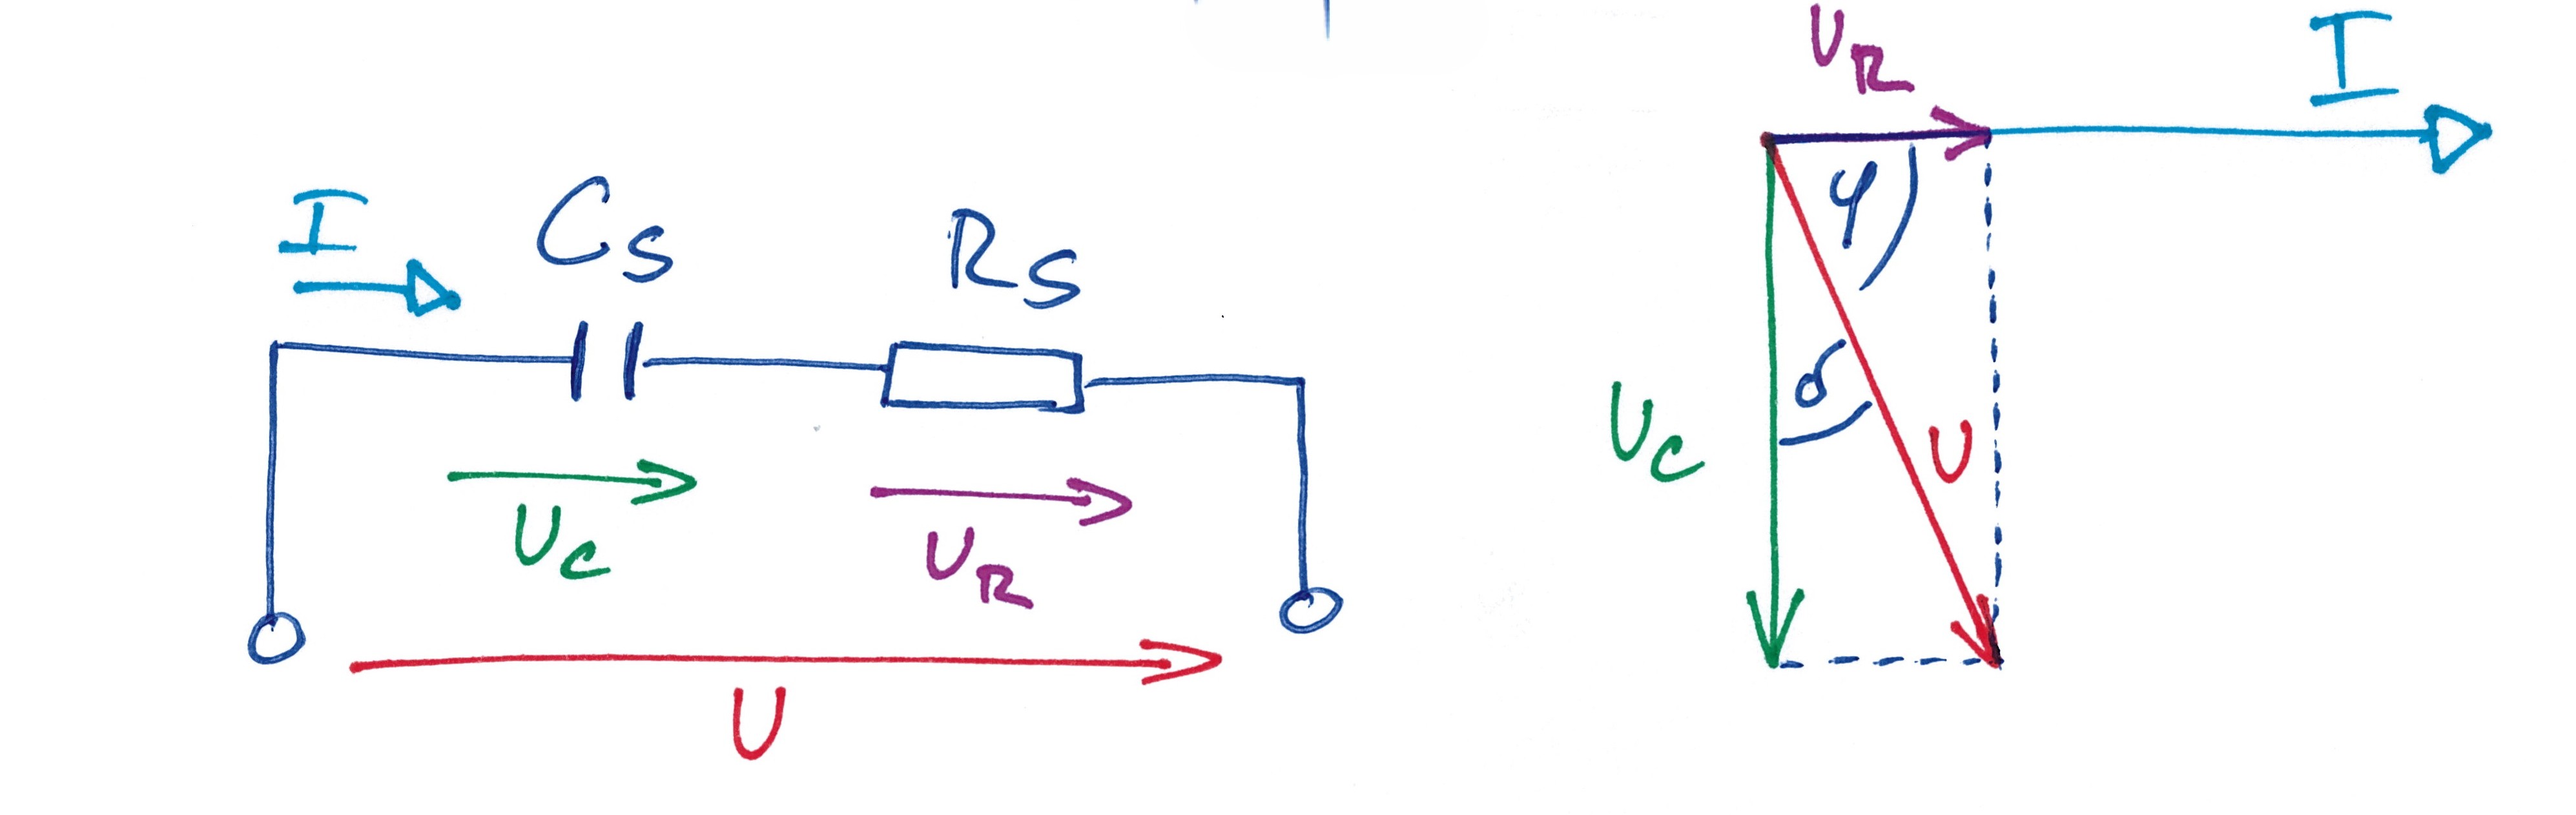 I
C_S
R_S
U_C
U_R
U
U_R
I
φ
δ
U_C
U